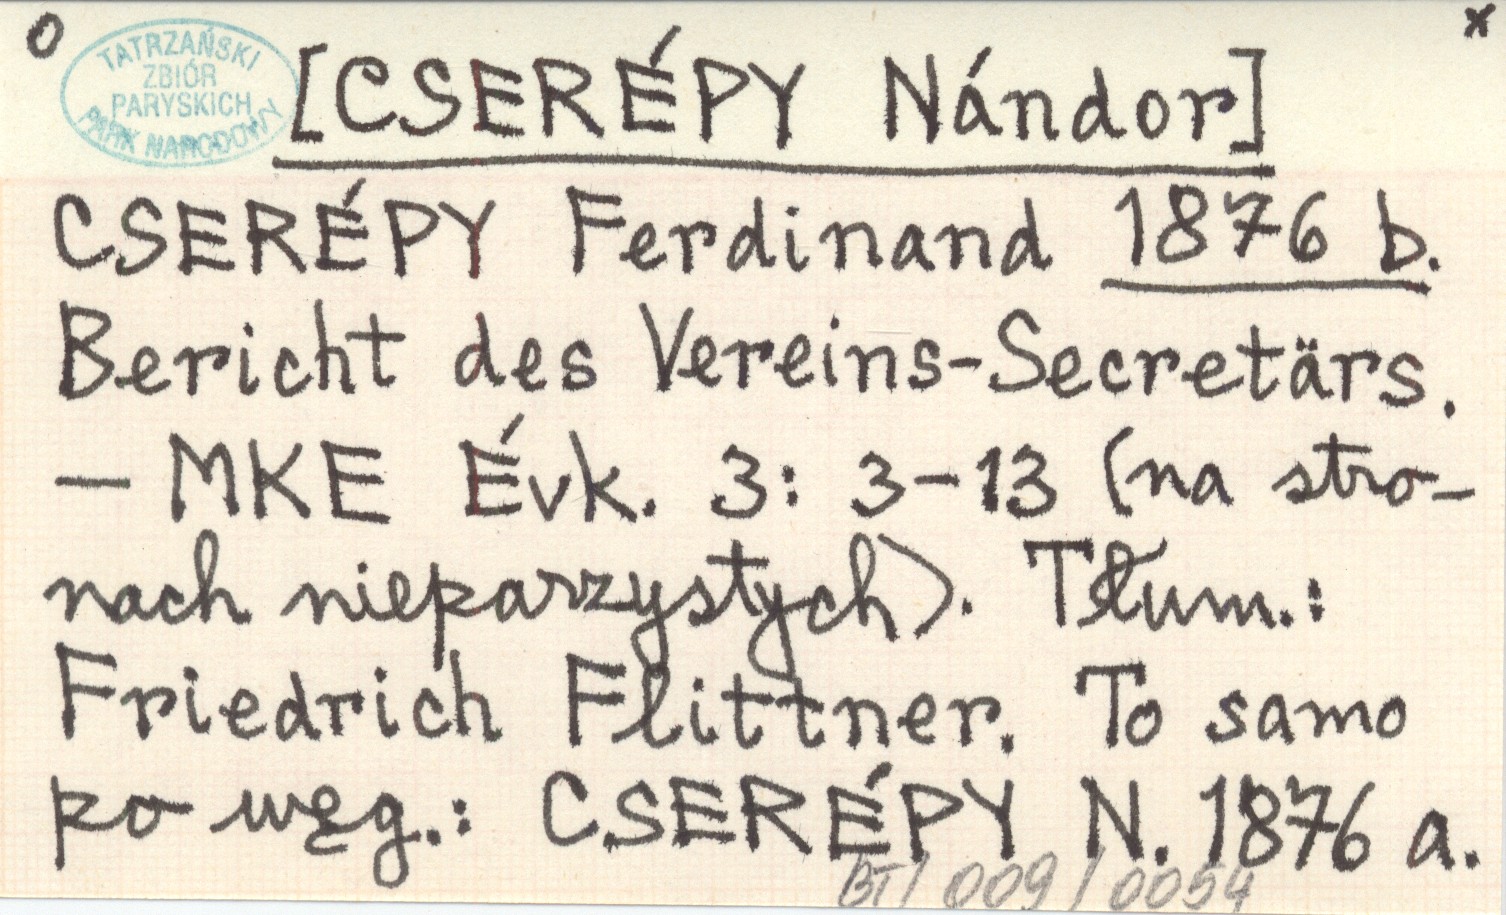 O
x
TATRZAŃSKI
ZBIÓR
PARYSKICH
PARK NARODOWY
[CSERÉPY Nándor]
CSERÉPY Ferdinand 1876 b.
Bericht des Vereins-Secretärs.
— MKE Évk. 3: 3-13 (na stro-
nach nieparzystych). Tłum.:
Friedrich Flittner. To samo
po węg.: CSERÉPY N. 1876 a.
BT/009/0054